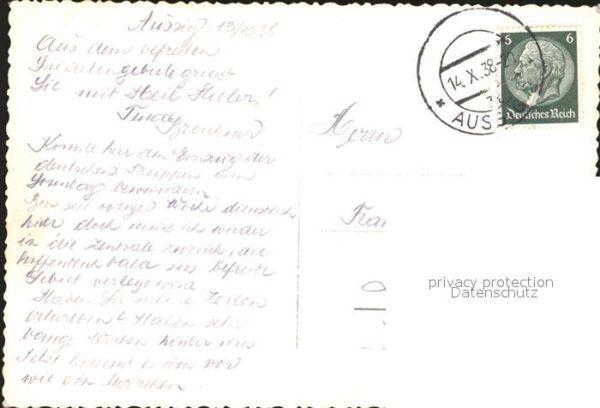 Aussig 13/10 38
Aus dem befreiten
Sudetengebiete grüsst
Sie mit Heil Hitler!
Konnte hier den Einzug der
deutschen Truppen am
Sonntag bewundern
Bin seit voriger Woche dienstlich
hier doch muss ich wieder
in die Zentrale zurück, die
hoffentlich bald ins befreite
Gebiet verlegt wird
Haben Sie meine Zeilen
erhalten? Haben sehr
bange Wochen hinter uns
Jetzt kommt es mir vor
wie ein Märchen.
14.X.38
AUS
5 6
Deutsches Reich
Herrn
Fra
privacy protection
Datenschutz